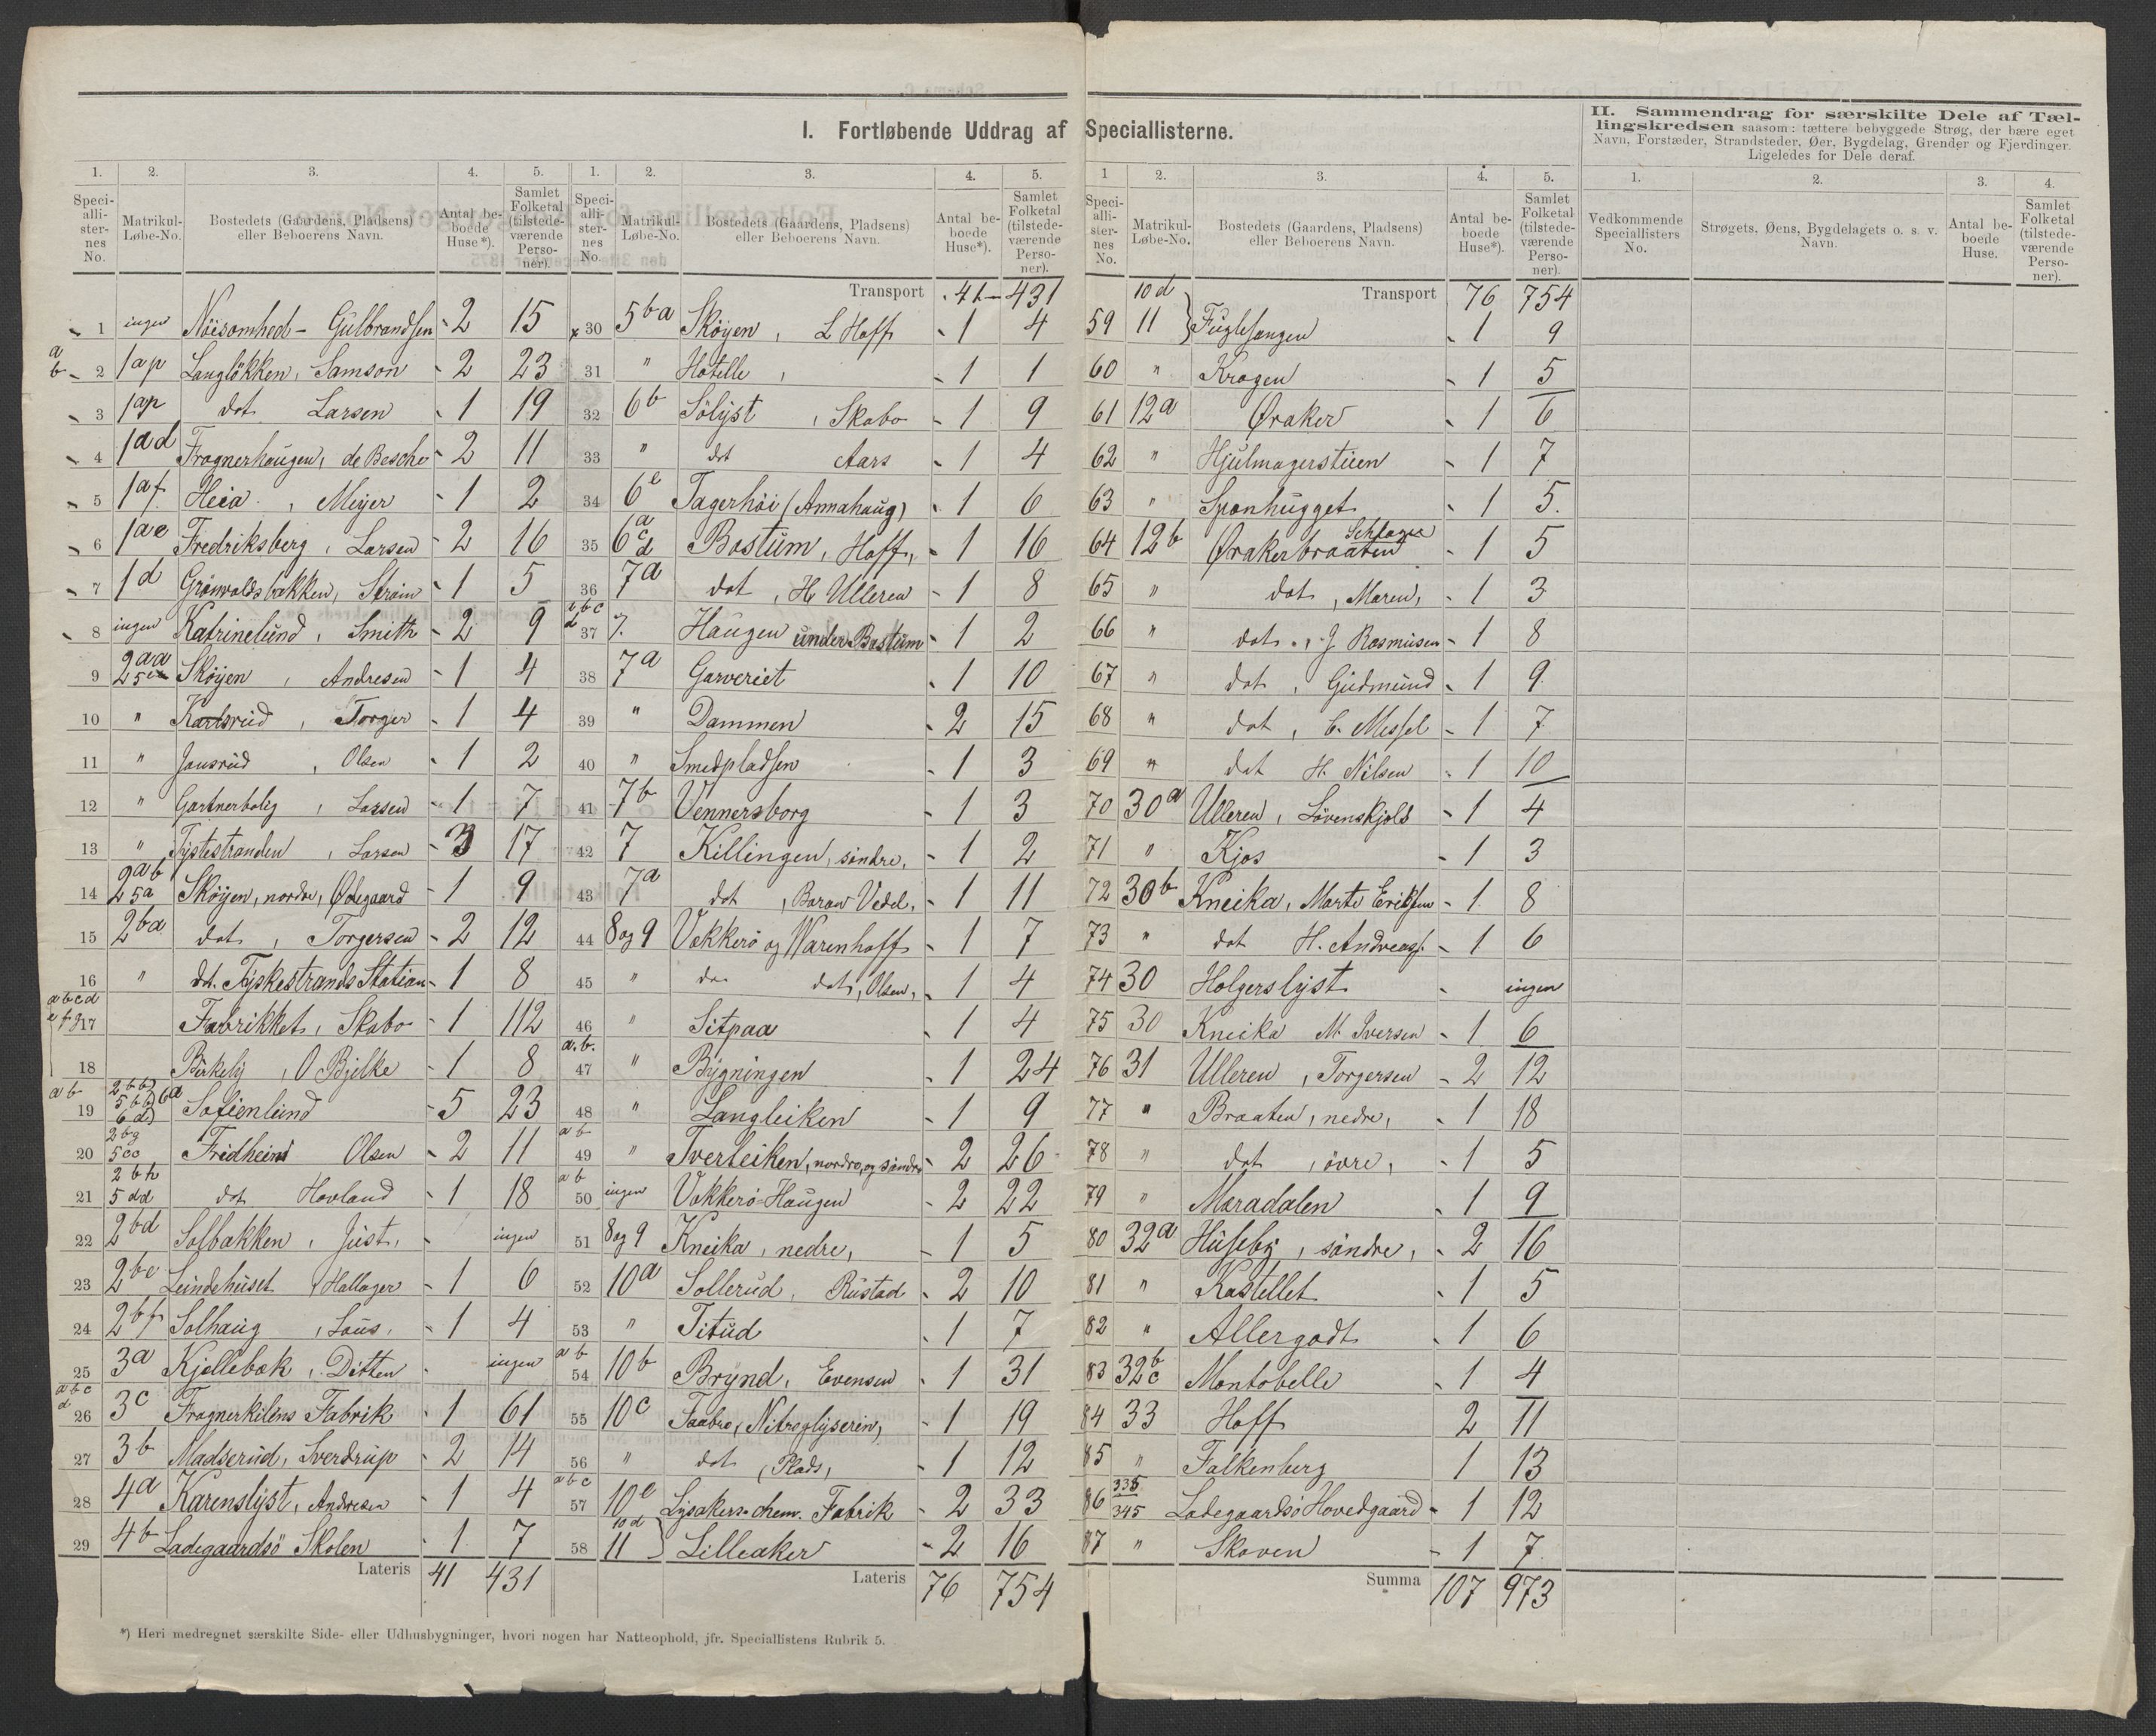 I. Fortløbende Uddrag af Speciallisterne.
II. Sammendrag for særskilte Dele af Tællingskredsen saasom: tættere bebyggede Strøg, der bære eget
Navn, Forstæder, Strandsteder, Øer, Bygdelag, Grender og Fjerdinger.
Ligeledes for Dele deraf.
1. 2. 3. 4. 5.
Speciallisternes No. Matrikul-Løbe-No. Bostedets (Gaardens, Pladsens) eller Beboerens Navn. Antal beboede Huse*). Samlet Folketal (tilstedeværende Personer).
1 ingen Nöisomhed - Gulbrandsen - 2 15
a b 2 1ap Langlökken, Samson - 2 23
3 1ap dot Larsen - 1 19
4 1ad Frognerhaugen, de Besche - 2 11
5 1af Heia, Meyer - 1 2
6 1ae Fredriksberg, Larsen - 2 16
7 1d Grönvoldsbakken, Strøm - 1 5
8 ingen Katrinelund, Smith - 2 9
9 2aa Skøyen, Andresen - 1 4
10 " Karlsrud, Torger - 1 4
11 " Jansrud, Olsen - 1 2
12 " Gartnerbolig, Larsen - 1 7
13 " Tystestranden, Larsen - 3 17
14 2ab 25a Skøyen, nordre, Ødegaard - 1 9
15 2ba dot, Torgersen - 2 12
16 " dt. Tyskestrands Station - 1 8
a b c d e f g 17 Fabrikket, Skabo - 1 112
18 Birkely, O Bjelke - 1 8
a b 19 2bb 5bb 6d 6a Sofienlund - 5 23
20 2bg 5cc Fridheim Olsen - 2 11
21 2bh 5dd dot Hovland - 1 18
22 2bd Solbakken, Just, - ingen
23 2be Leindehuset, Hallager - 1 6
24 2bf Solhaug, Lous, - 1 4
25 3a Kjellebæk, Ditten - ingen
a b c d 26 3c Frognerkilens Fabrik - 1 61
27 3b Madserud, Sverdrup - 2 14
28 4a Karenslyst, Andresen - 1 4
29 4b Ladegaardsö Skolen - 1 7
Lateris 41 431
1. 2. 3. 4. 5.
Speciallisternes No. Matrikul-Løbe-No. Bostedets (Gaardens, Pladsens) eller Beboerens Navn. Antal beboede Huse*). Samlet Folketal (tilstedeværende Personer).
Transport 41 - 431
x 30 5ba Skøyen, L Hoff - 1 4
31 " Hotelle, - 1 1
32 6b Sölyst, Skabo - 1 9
33 " dot Aars - 1 4
34 6e Tagerhöi (Annahaug) - 1 6
35 6 a c d Bestum, Hoff, - 1 16
36 7a dot, H Ulleren - 1 8
37 7. Haugen under Bestum - 1 2
38 7a Garveriet - 1 10
39 " Dammen - 2 15
40 " Smedpladsen - 1 3
41 7b Vennersborg - 1 3
42 7 Killingen, söndre, - 1 2
43 7a dot, Baron Vedel, - 1 11
44 8 og 9 Vækkerö og Warenhoff - 1 7
45 " do dot, Olsen, - 1 4
46 " Sitpaa - 1 4
a. b. 47 " Bygningen - 1 24
48 " Langleiken - 1 9
a b 49 " Tverleiken, nordre, og söndre - 2 26
a b 50 ingen Vækkerö-Haugen - 2 22
51 8 og 9 Kneika, nedre, - 1 5
52 10a Sollerud, Rustad - 2 10
53 " Titud - 1 7
a b 54 10b Brynd, Evensen - 1 31
55 10c Faabro, Nitroglyserin, - 1 19
56 " dot, Plads, - 1 12
a b c 57 10e Lysakers chem. Fabrik - 2 33
58 10d 11 } Lilleaker - 2 16
Lateris 76 754
1 2. 3. 4. 5.
Speciallisternes No. Matrikul-Løbe-No. Bostedets (Gaardens, Pladsens) eller Beboerens Navn. Antal beboede Huse*). Samlet Folketal (tilstedeværende Personer).
Transport 76 754
59 10d 11 } Fuglesangen - 1 9
60 " Krogen - 1 5
61 12a Øraker - 1 6
62 " Hjulmagerstuen - 1 7
63 " Sponhugget - 1 5.
64 12b Ørakerbraaten - 1 5
65 " dot, Maren, - 1 3
66 " dot, J Rasmusen - 1 8
67 " dot, Gudmund - 1 9
68 " dot, C. Messel - 1 7
69 " dot H. Nilsen - 1 10
70 30a Ulleren, Lövenskjold - 1 4
71 " Kjos - 1 3
72 30b Kneika, Marte Eriksen - 1 8
73 " dot H. Andreas. - 1 6
74 30 Holgerslyst - ingen
75 30 Kneika M. Iversen - 1 6
76 31 Ulleren, Torgersen - 2 12
77 " Braaten, nedre, - 1 18
78 " dot, övre, - 1 5
79 " Maradalen - 1 9
80 32a Huseby, söndre, - 2 16
81 " Kastellet - 1 5
82 " Allergodt - 1 6
83 32 b c Montebello - 1 4
84 33 Hoff 2 11
85 " Falkenberg 1 13
86 335 345 Ladegaardsö Hovedgaard - 1 12
87 " Skoven - 1 7
Summa 107 973
1. 2. 3. 4.
Vedkommende Speciallisters No. Strøgets, Øens, Bygdelagets o. s. v. Navn. Antal beboede Huse. Samlet Folketal (tilstedeværende Personer).
*) Heri medregnet særskilte Side- eller Udhusbygninger, hvori nogen har Natteophold, jfr. Speciallistens Rubrik 5.